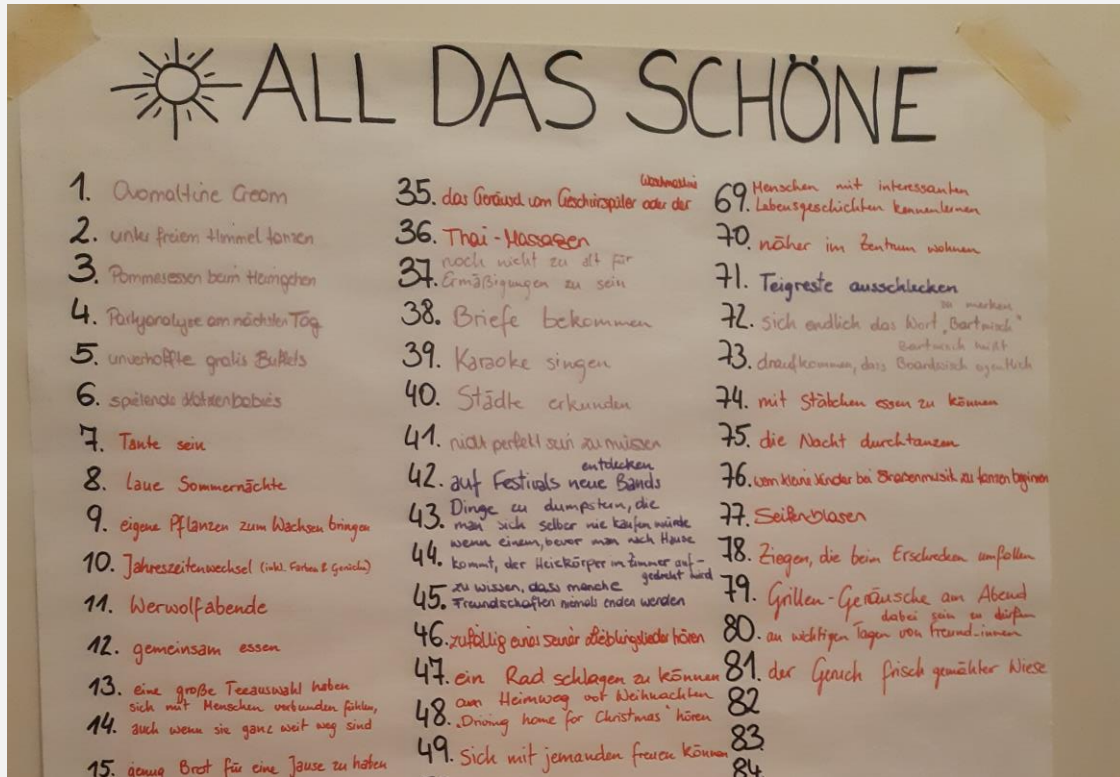 ALL DAS SCHÖNE
1. Ovomaltine Cream
2. unter freiem Himmel tanzen
3. Pommesessen beim
4. Partyanalyse am nächsten Tag
5. unverhoffte gratis Buffets
6. spielende Katzenbabies
7. Tante sein
8. laue Sommernächte
9. eigene Pflanzen zum Wachsen bringen
10. Jahreszeitenwechsel (inkl. Farben & Gerüche)
11. Werwolfabende
12. gemeinsam essen
13. eine große Teeauswahl haben
14. sich mit Menschen verbunden fühlen,
auch wenn sie ganz weit weg sind
15. genug Brot für eine Jause zu haben
35. das Geräusch vom Geschirrspüler oder der
Waschmaschine
36. Thai-Massagen
37. noch nicht zu alt für
Ermäßigungen zu sein
38. Briefe bekommen
39. Karaoke singen
40. Städte erkunden
41. nicht perfekt sein zu müssen
42. auf Festivals neue Bands
entdecken
43. Dinge zu dumpstern, die
man sich selber nie kaufen würde
44. wenn einem, bevor man nach Hause
kommt, der Heizkörper im Zimmer auf-
gedreht wird
45. zu wissen, dass manche
Freundschaften niemals enden werden
46. zufällig eines seiner Lieblingslieder hören
47. ein Rad schlagen zu können
48. am Heimweg vor Weihnachten
"Driving home for Christmas" hören
49. Sich mit jemanden freuen können
69. Menschen mit interessanten
Lebensgeschichten kennenlernen
70. näher im Zentrum wohnen
71. Teigreste ausschlecken
72. sich endlich das Wort "Bartwisch"
zu merken
73. draufkommen, dass Boardwisch eigentlich
Bartwisch heißt
74. mit Stäbchen essen zu können
75. die Nacht durchtanzen
76. wenn kleine Kinder bei Straßenmusik zu tanzen beginnen
77. Seifenblasen
78. Ziegen, die beim Erschrecken umfallen
79. Grillen-Geräusche am Abend
80. an wichtigen Tagen von Freund_innen
dabei sein zu dürfen
81. der Geruch frisch gemähter Wiese
82
83
84.